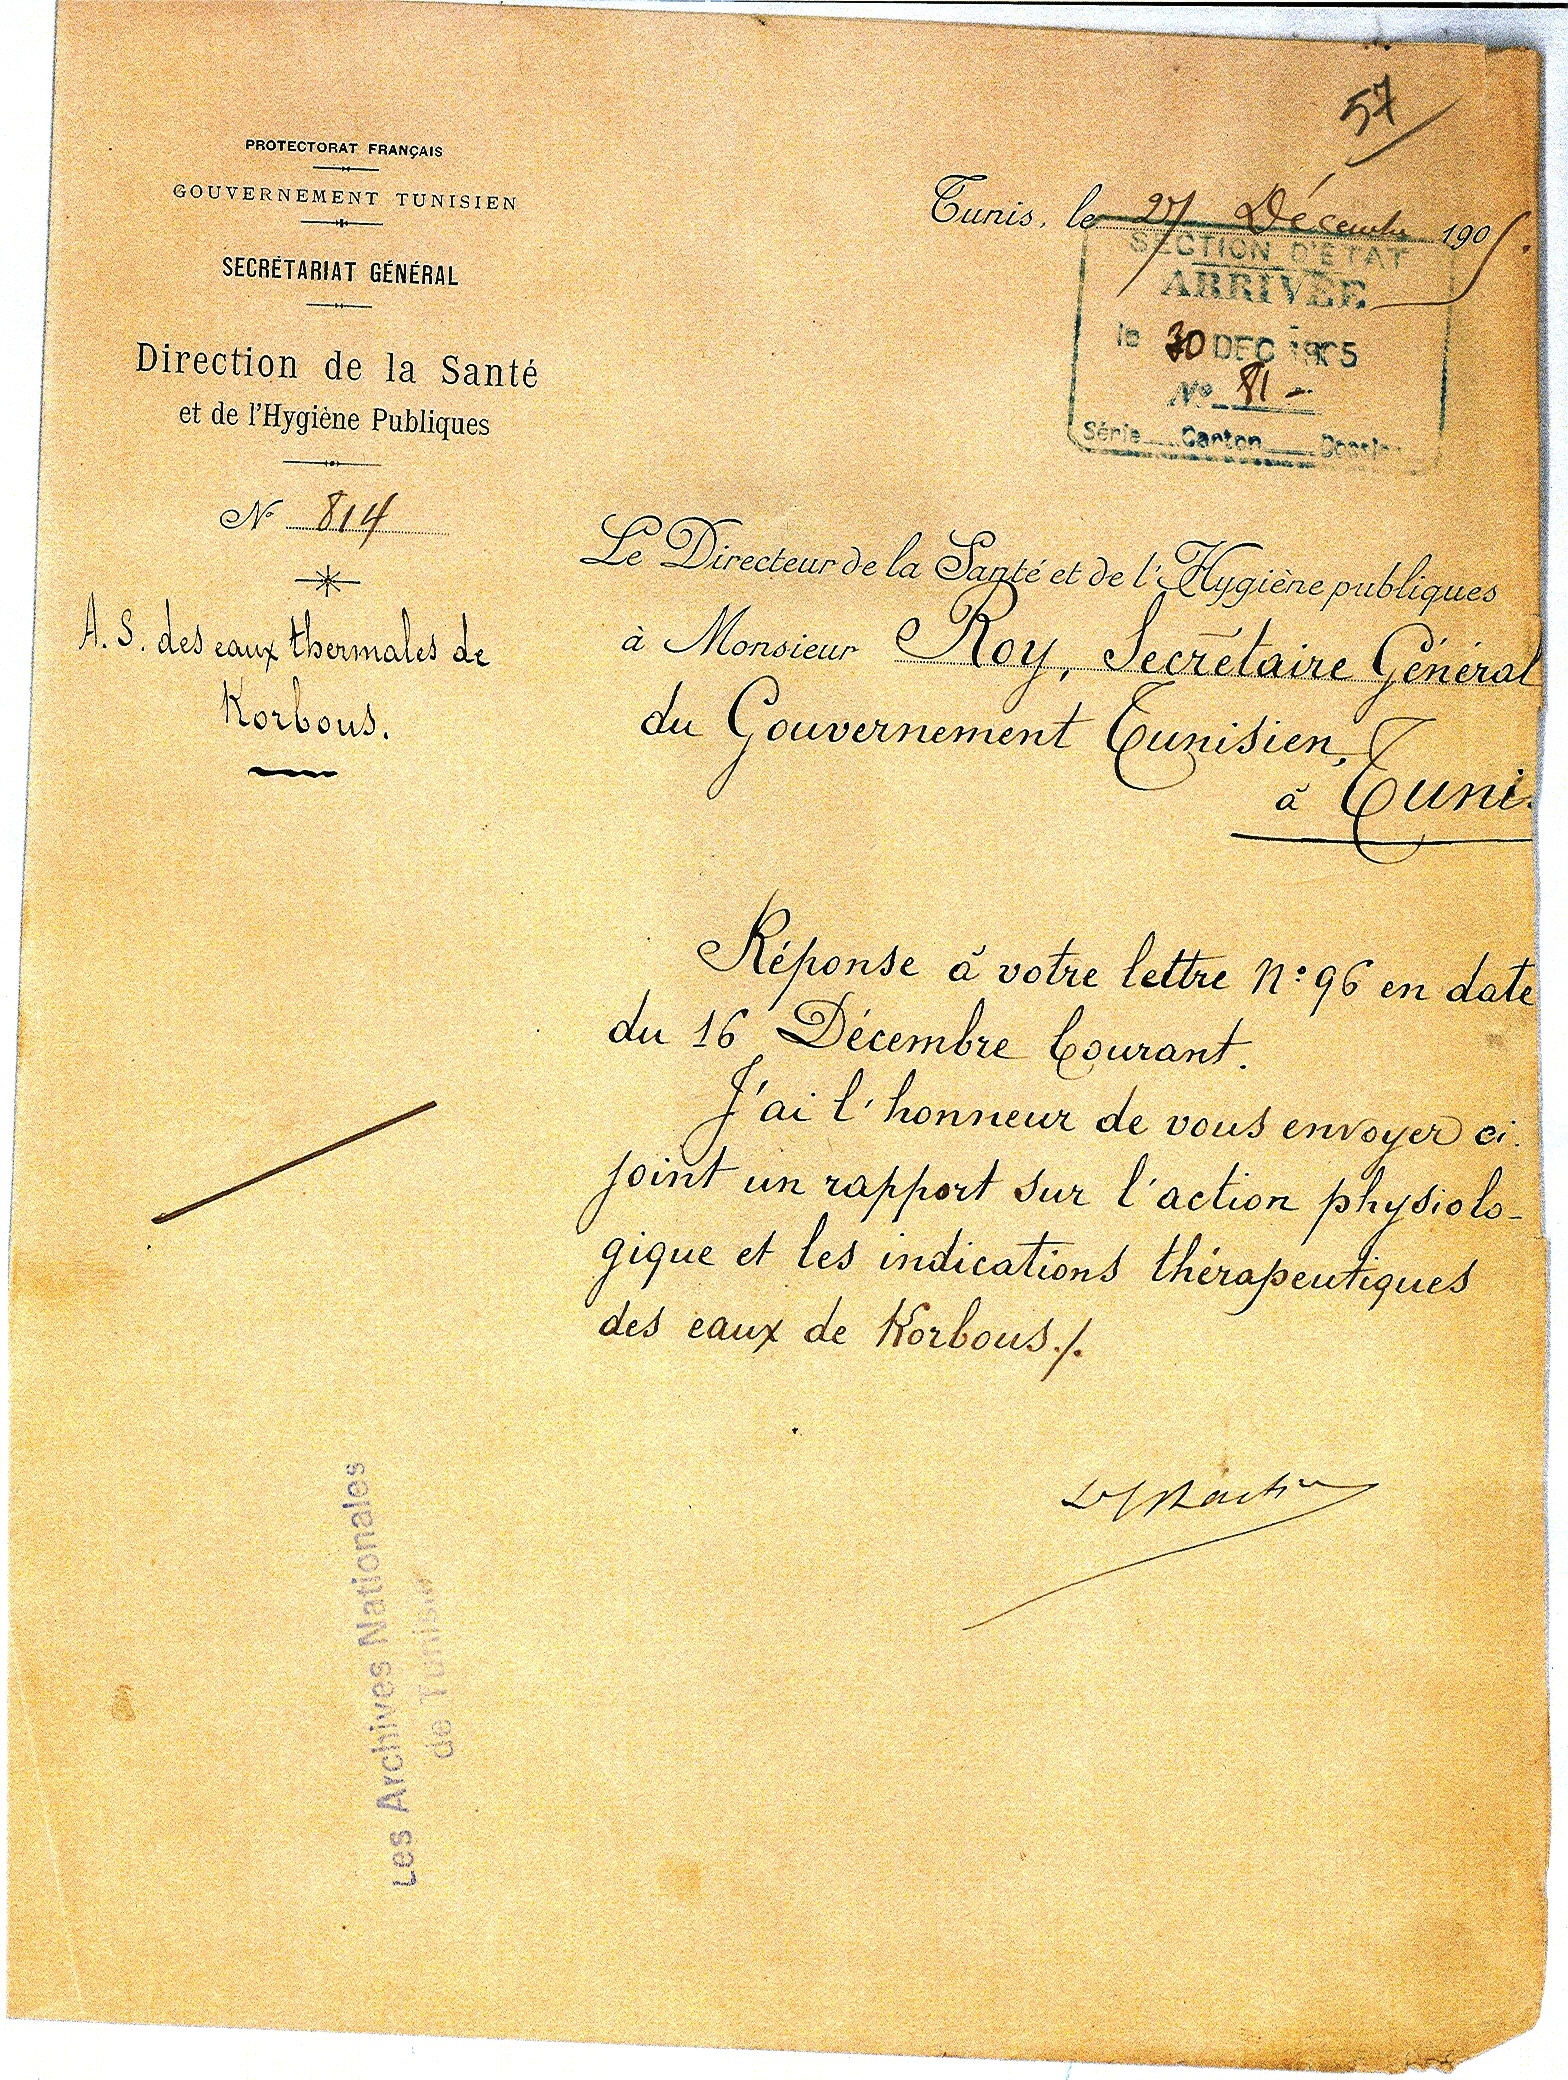 57
PROTECTORAT FRANÇAIS
GOUVERNEMENT TUNISIEN
SECRÉTARIAT GÉNÉRAL
Direction de la Santé
et de l'Hygiène Publiques
N° 814
A. S. des eaux thermales de
Korbous.
Tunis, le 27 Décembre 1905.
SECTION D'ETAT
ARRIVÉE
le 30 DEC 1905
N° 81 -
Série Carton Dossier
Le Directeur de la Santé et de l'Hygiène publiques
à Monsieur Roy, Secrétaire Général
du Gouvernement Tunisien,
à Tunis
Réponse à votre lettre N° 96 en date
du 16 Décembre Courant.
J'ai l'honneur de vous envoyer ci-
joint un rapport sur l'action physiolo-
gique et les indications thérapeutiques
des eaux de Korbous./.
Les Archives Nationales
de Tunisie